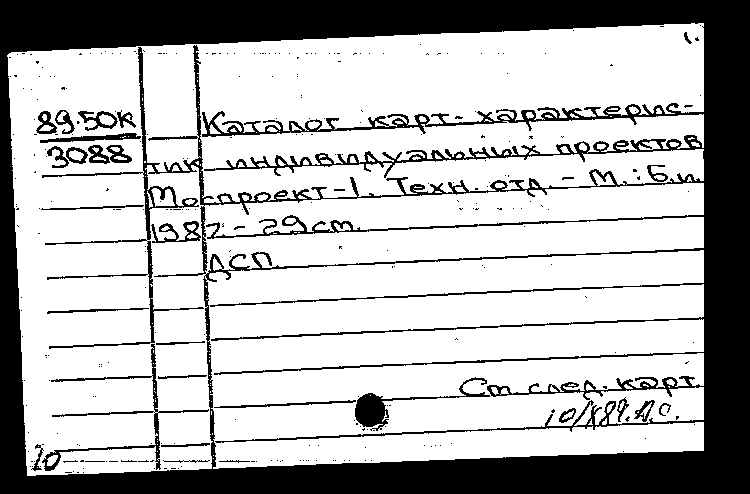 1.
89.50к Каталог карт-характерис-
3088 тик индивидуальных проектов
Моспроект-1. Техн. отд. - М.: Б.и.
1987. - 29 ст.
ДСП.
См. след. карт.
10/X89. Д.С.
20